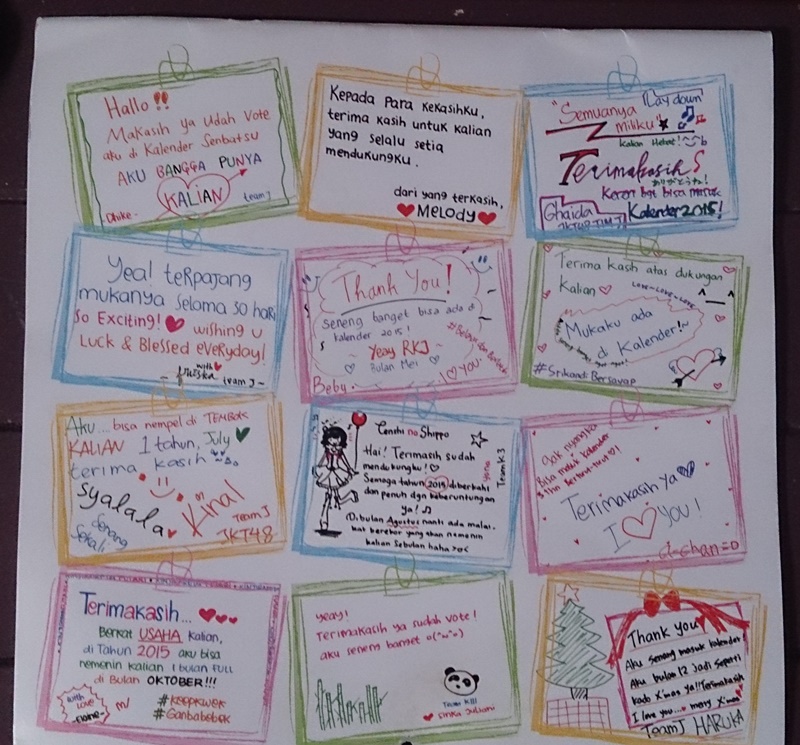 Hallo !!
Makasih ya udah vote
aku di Kalender Senbatsu
AKU BANGGA PUNYA
KALIAN
Dhike - team J
Kepada para kekasihku,
terima kasih untuk kalian
yang selalu setia
mendukungku.
dari yang terkasih,
MELODY
"Semuanya
milikU"
Lay down
kalian Hebat!
Terimakasih
ありがとうね!
Keren bgt bisa masuk
Kalender 2015!
Ghaida
JKT48 TIM J
Yea! terpajang
mukanya selama 30 hari
So Exciting! wishing u
Luck & Blessed everyday!
with
team J -
Thank You!
seneng banget bisa ada di
kalender 2015!
~ Yeay RKJ ~
Bulan Mei
I ♡ YOU.
Beby.
Terima kasih atas dukungan
kalian ♡
LOVE-LOVE-LOVE
Mukaku ada
di Kalender!~
#Srikandi Bersayap
Aku... bisa nempel di TEMBOK
KALIAN 1 tahun, July
terima kasih
syalala
Senang
Sekali
Kinal
Team J
JKT48
Tenshi no Shippo
Hai! Terimasih sudah
mendukungku! ♡
Semoga tahun 2015 diberkahi
dan penuh dgn keberuntungan
ya! ♫
Dibulan Agustus nanti ada malai-
kat berekor yang akan nemenin
kalian sebulan haha >o<
yona
Team K3
Gak nyangka
Bisa masuk kalender
3 thn berturut-turut ♡!
Terimakasih ya
I ♡ YOU!
ci-chan =D
Terimakasih...
Berkat USAHA kalian,
di Tahun 2015 aku bisa
nemenin kalian 1 bulan FULL
di Bulan OKTOBER!!!
with
love
#KOPPKWOK
#Ganbabebek
yeay!
Terimakasih ya sudah vote!
aku seneng banget
Team KIII
sinka juliani
Thank you
Aku senang masuk kalender
Aku bulan 12 Jadi seperti
kado X'mas ya!! Terimakasih
I love you... merry X'mas
TeamJ HARUKA